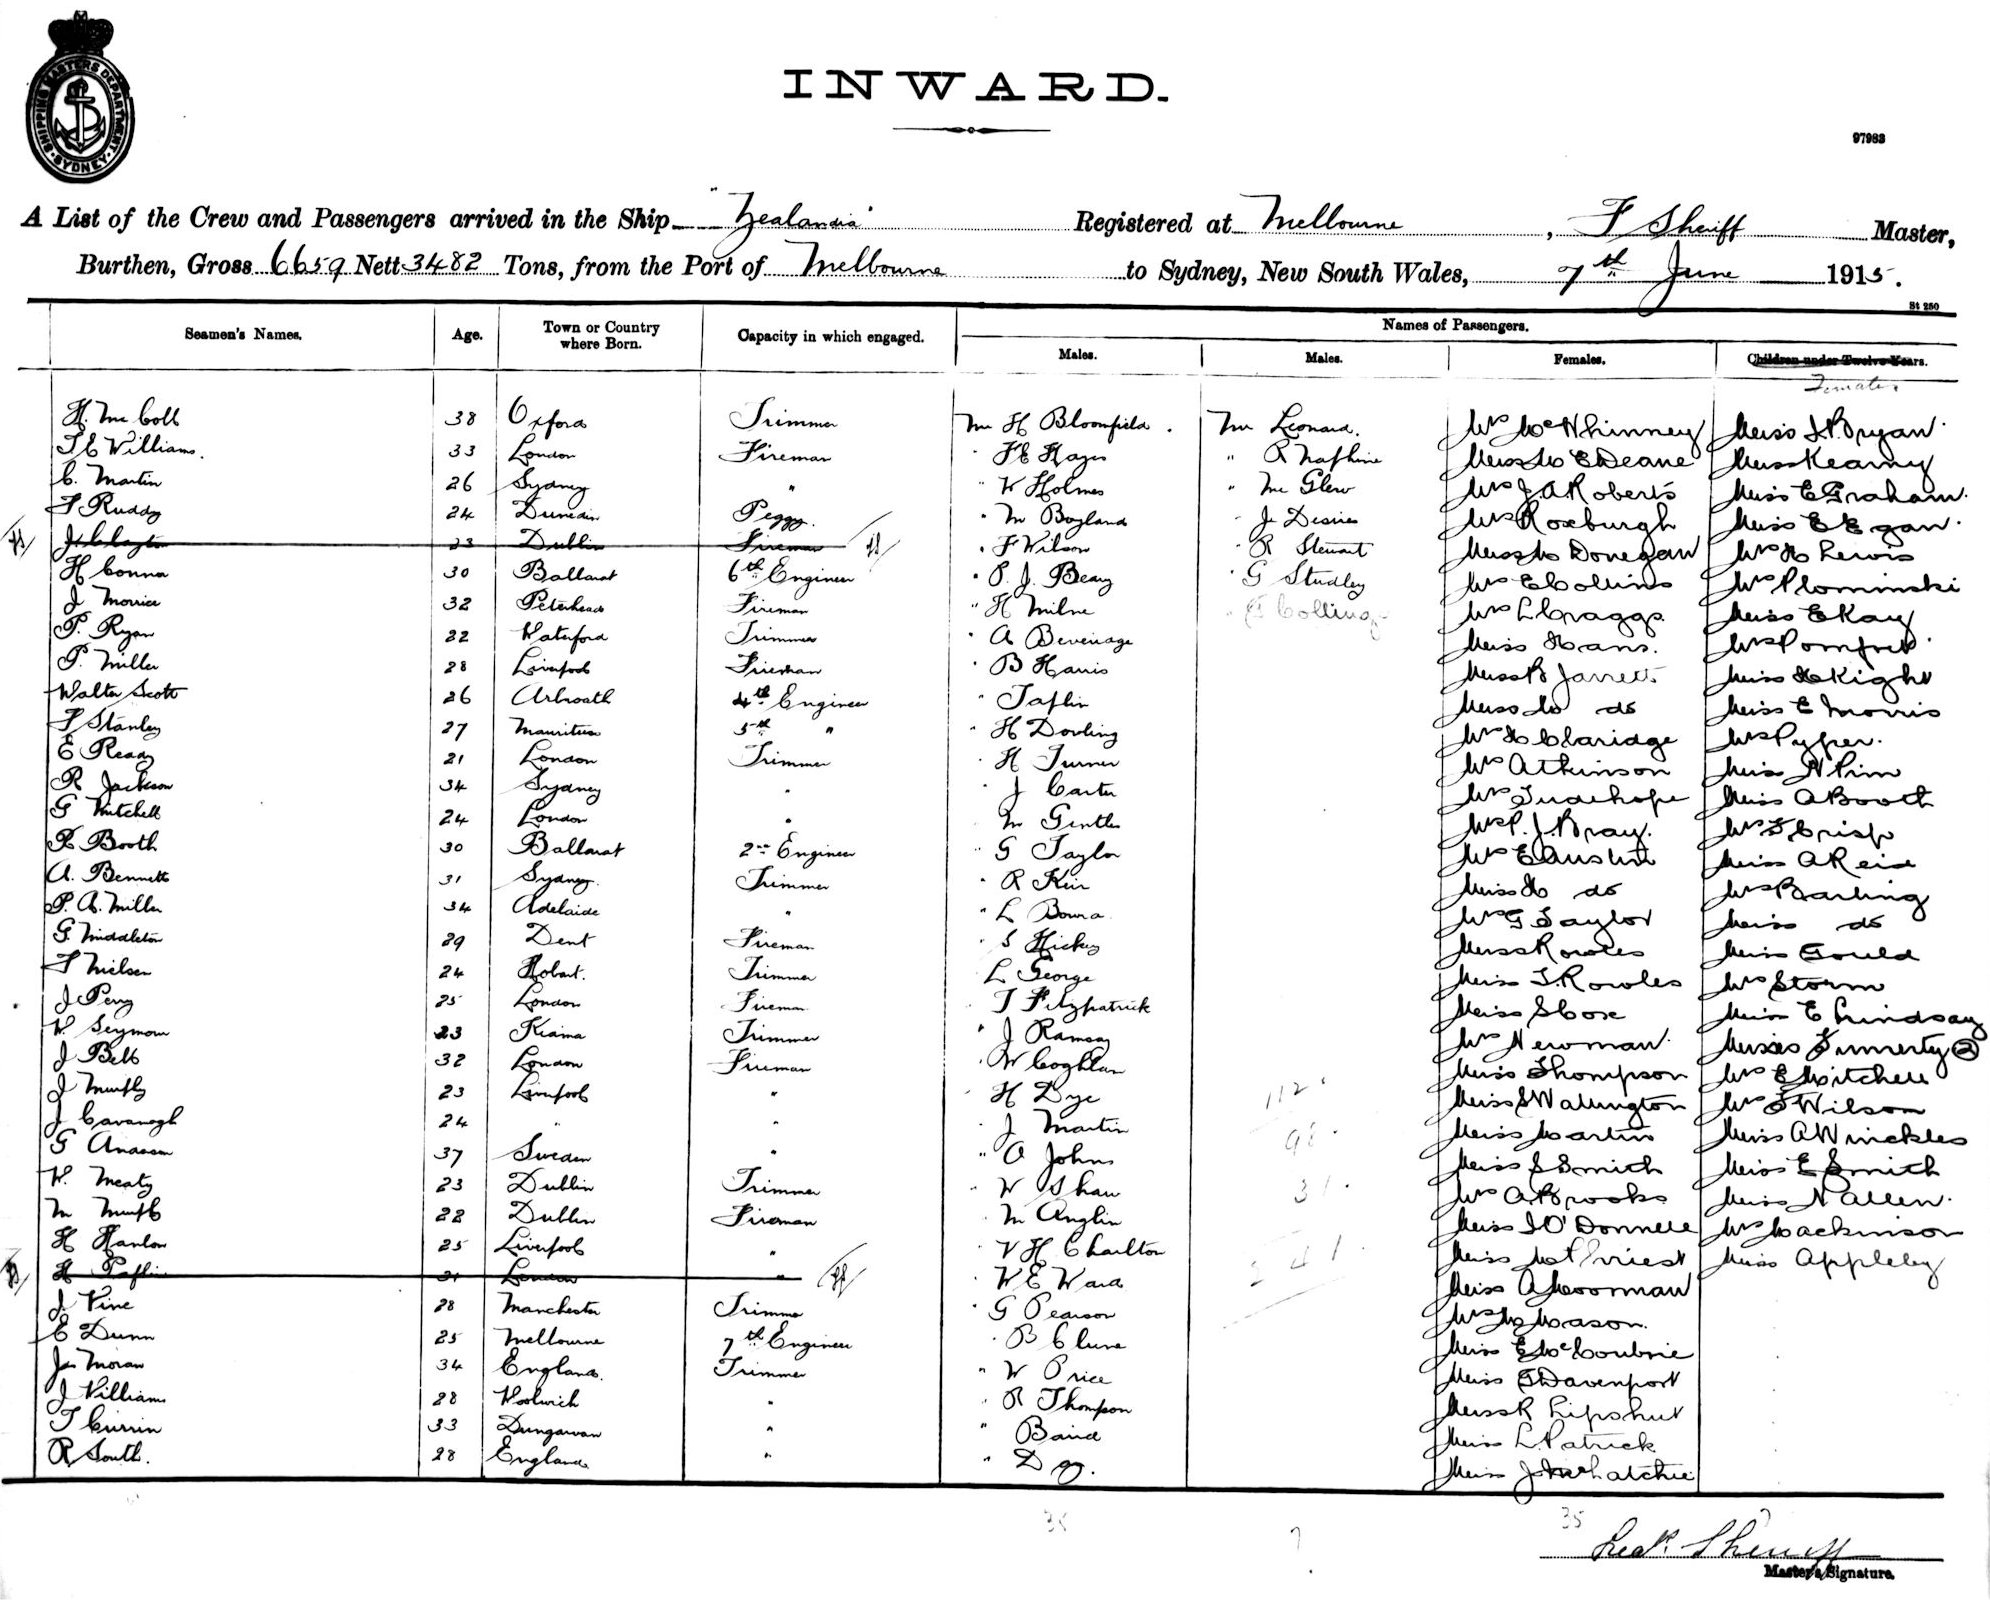 SHIPPING MASTERS DEPARTMENT SYDNEY
INWARD.
97983
A List of the Crew and Passengers arrived in the Ship "Zealandia" Registered at Melbourne, F Sheriff Master,
Burthen, Gross 6659 Nett 3482 Tons, from the Port of Melbourne to Sydney, New South Wales, 7th June 1915.
St 250
Seamen's Names. Age. Town or Country where Born. Capacity in which engaged. Names of Passengers.
Males. Males. Females. Children under Twelve Years.
Females
H. McColl 38 Oxford Trimmer Mr H Bloomfield. Mr Leonard. Mrs McWhinney Miss J. Bryan.
T E Williams. 33 London Fireman " H Hayes " R Naphine Miss M E Deane Miss Kearny
C. Martin 26 Sydney " " W Holmes " Mc Glew Mrs J. A Roberts Miss E Graham.
F Ruddy 24 Dunedin Peggy. " M Boyland " J Desires Mrs Roxburgh Miss E Egan.
J. Clayton 23 Dublin Fireman " F Wilson " R Stewart Miss M Donegan Mrs H Lewis
H Conna 30 Ballarat 6th Engineer " P. J. Beary " G Studley Mrs E Collins Mrs Plominski
J Morrice 32 Peterhead Fireman " H Milne " Collins Mrs L Craggs. Miss E Kay
P. Ryan 22 Waterford Trimmer " A Beverage Miss Hans. Mrs Pomfret
P. Miller 28 Liverpool Fireman " B Harris Miss B Jarrett Miss H Kight
Walter Scott 26 Arbroath 4th Engineer " Taplin Miss M do Miss E Morris
F Stanley 27 Mauritius 5th " " H Dowling Mrs H Claridge Mrs Pyper.
E Ready 21 London Trimmer " H Turner Mrs Atkinson Miss N Pim
R Jackson 34 Sydney " " J Carter Mrs Trudehope Miss A Booth
G Mitchell 24 London " " M Gentles Mrs P. J. Bray. Mrs F Crisp
R Booth 30 Ballarat 2nd Engineer " G Taylor Mrs E Austin Miss A Reid
A. Bennett 31 Sydney. Trimmer " R Keir Miss H do Mrs Barling
P. A. Miller 34 Adelaide " " L Bowra Mrs G Taylor Miss do
G. Middleton 29 Dent Fireman " S Hickey Miss Rowles Miss Gould
F Nielsen 24 Hobart. Trimmer " L George Miss T. Rowles Mrs Storm
J Perry 25 London Fireman " T Fitzpatrick Miss S Cox Miss E Lindsay
W. Seymour 23 Kiama Trimmer " J Ramsay Mrs Newman. Misses Finnerty (2)
J Bell 32 London Fireman " W Coghlan Miss Thompson Mrs E Mitchell
J Murphy 23 Liverpool " " H Dye 112. Miss S Wallington Mrs F Wilson
J Cavanagh 24 " " " J Martin 98. Miss Martin Miss A Winckles
G Anderson 37 Sweden " " O Johns Miss S Smith Miss E Smith
W. Meaty 23 Dublin Trimmer " W Shaw 31. Mrs A Brooks Miss N Allen.
M Murphy 22 Dublin Fireman " M Anglin Miss J O'Donnell Mrs Mackinson
H Hanlon 25 Liverpool " " V H Charlton 241. Miss M Priest Miss Appleby
H Taplin 21 London " " W E Ward Miss A Moorman
J. Vine 28 Manchester Trimmer " G Pearson Mrs M Mason.
E Dunn 25 Melbourne 7th Engineer " B Clune Miss E McCoubrie
Jas Moran 34 England. Trimmer " W Price Miss E Davenport
J Williams 28 Woolwich " " R Thompson Miss R Lipshut
T Currin 33 Dungarvan " " Baird Miss L Patrick
R South. 28 England " " D Miss J McRhatchie
35 7 35
Fredk. Sheriff
Master's Signature.